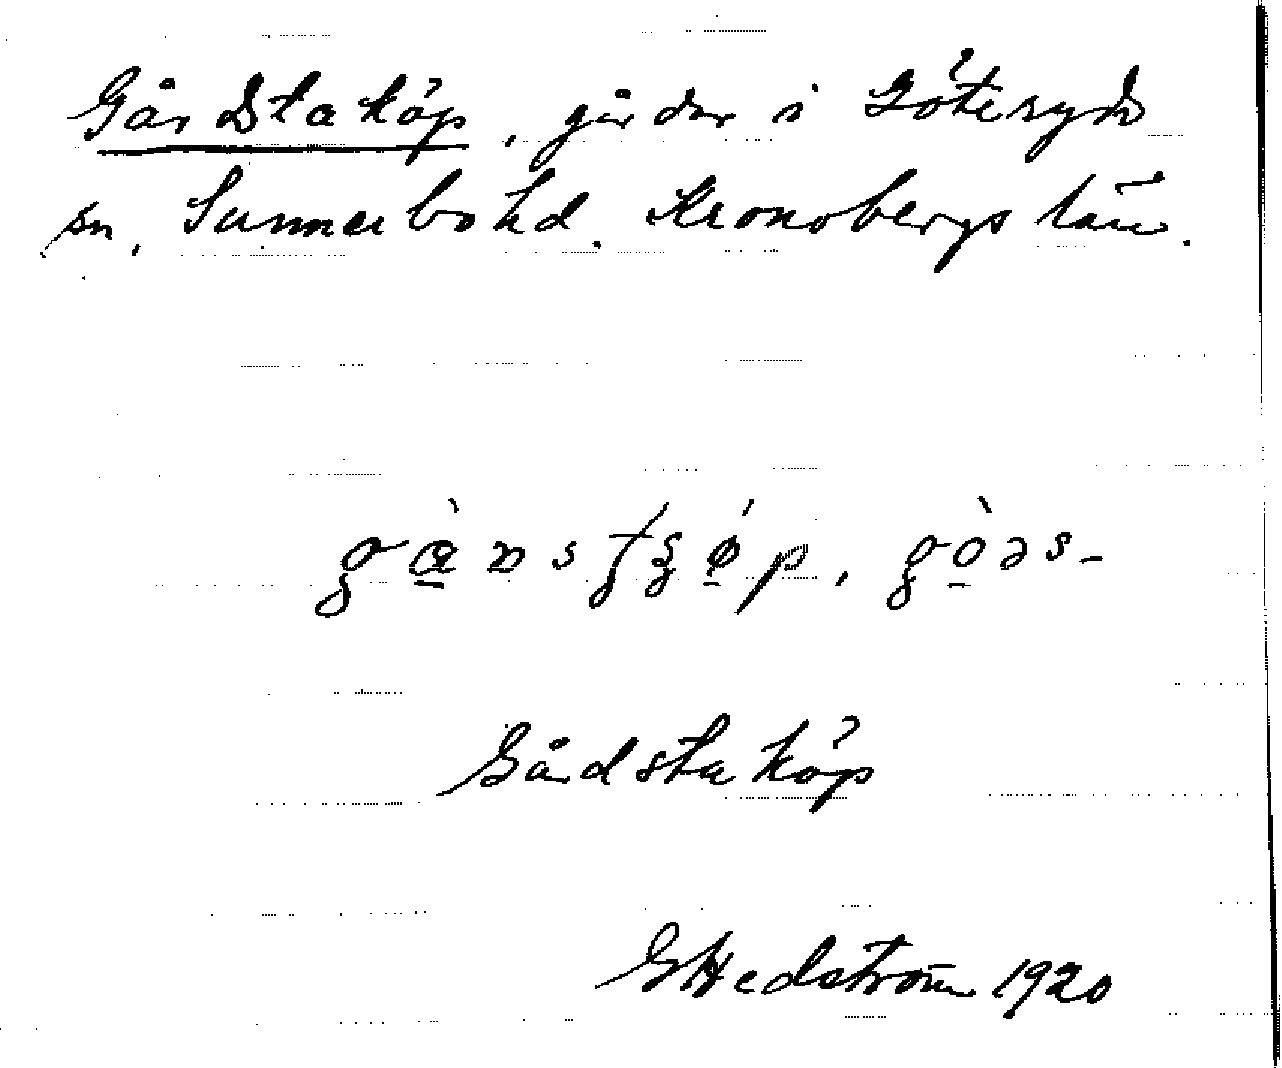 Gårdstaköp, gårdar i Göteryds
sn, Sunnerbo hd. Kronobergs län.
Gårdstaköp
GHedström 1920